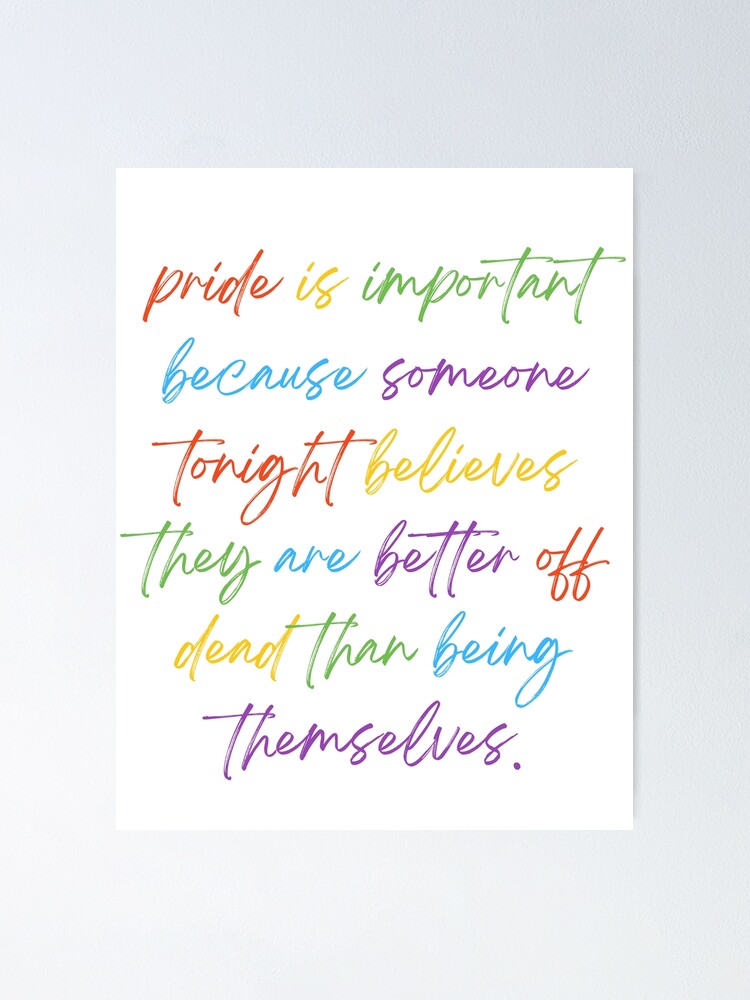 pride is important
because someone
tonight believes
they are better off
dead than being
themselves.